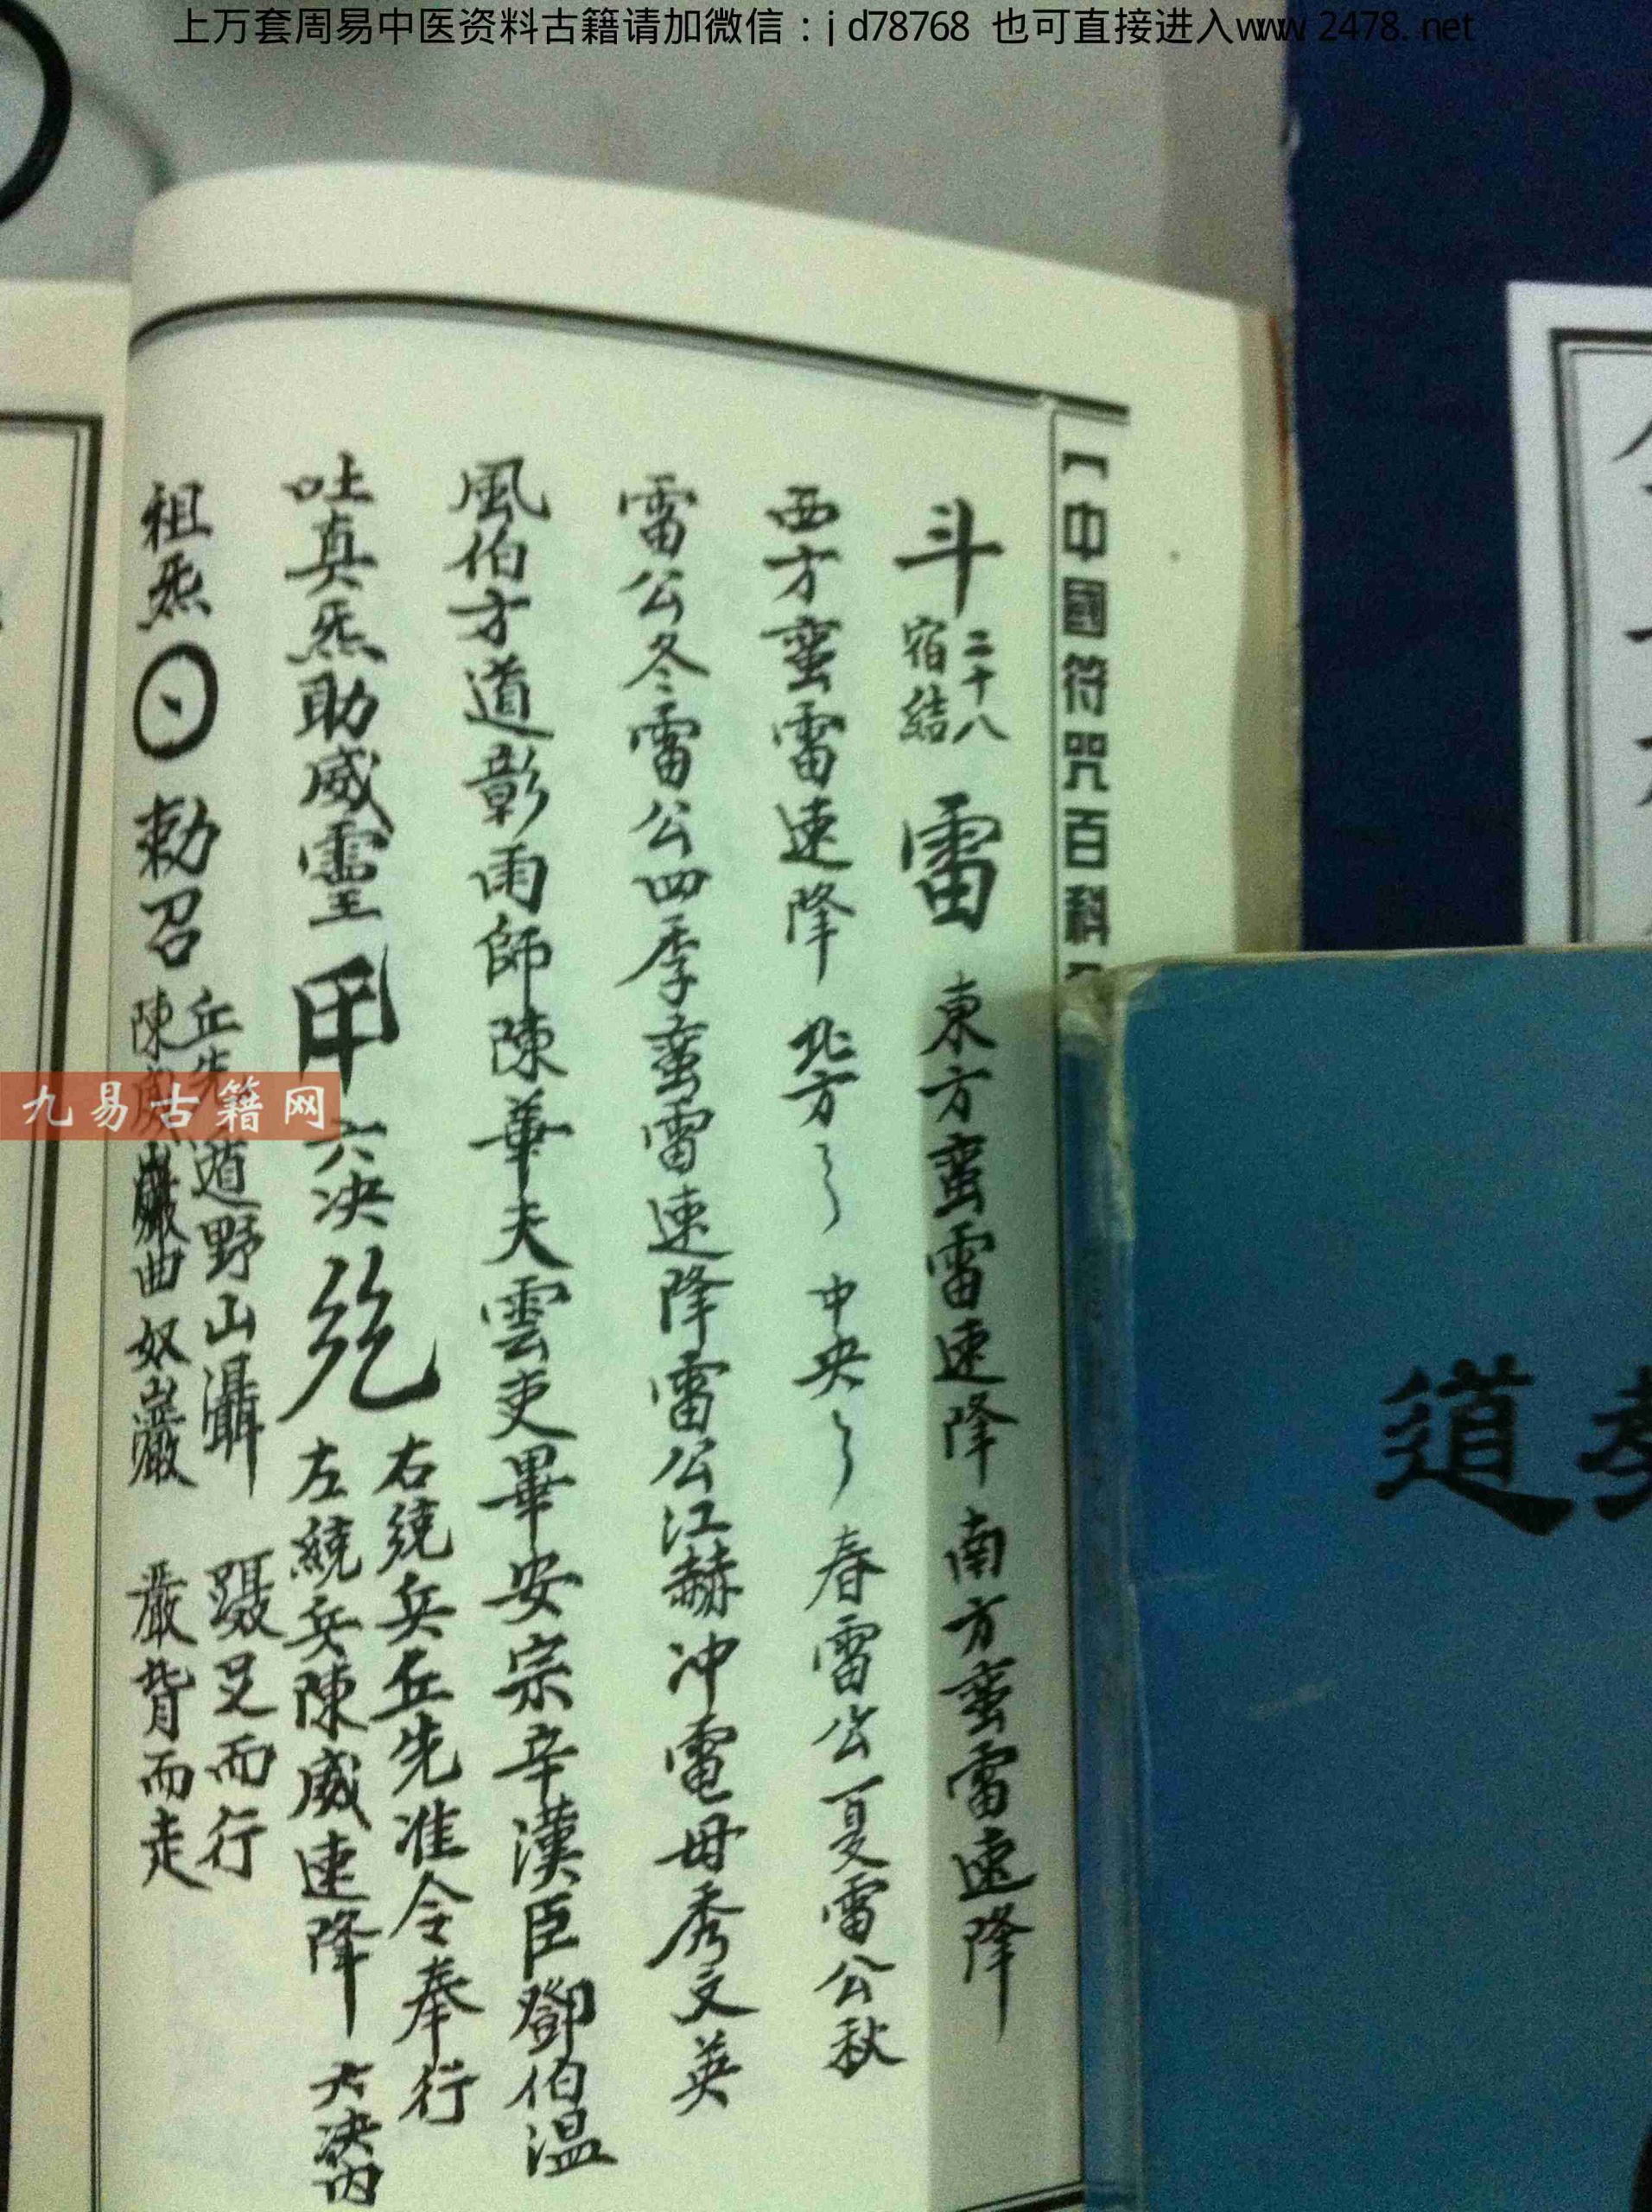 上万套周易中医资料古籍请加微信：jd78768 也可直接进入www.2478.net
【中國符咒百科
斗 二十八宿結 雷 東方蛮雷速降 南方蛮雷速降
西方蛮雷速降 北方〻 中央〻 春雷公夏雷公秋
雷公冬雷公四季蛮雷速降雷公江赫冲電母秀文英
風伯方道彰雨師陳華夫雲吏畢安宗辛漢臣鄧伯温
吐真炁助威靈 六决
右繞兵丘先准令奉行
左繞兵陳威速降 六决内
祖炁 勅召
丘先 道野山灄 蹑足而行
陳威 巖曲奴巖 嚴背而走
九易古籍网
道